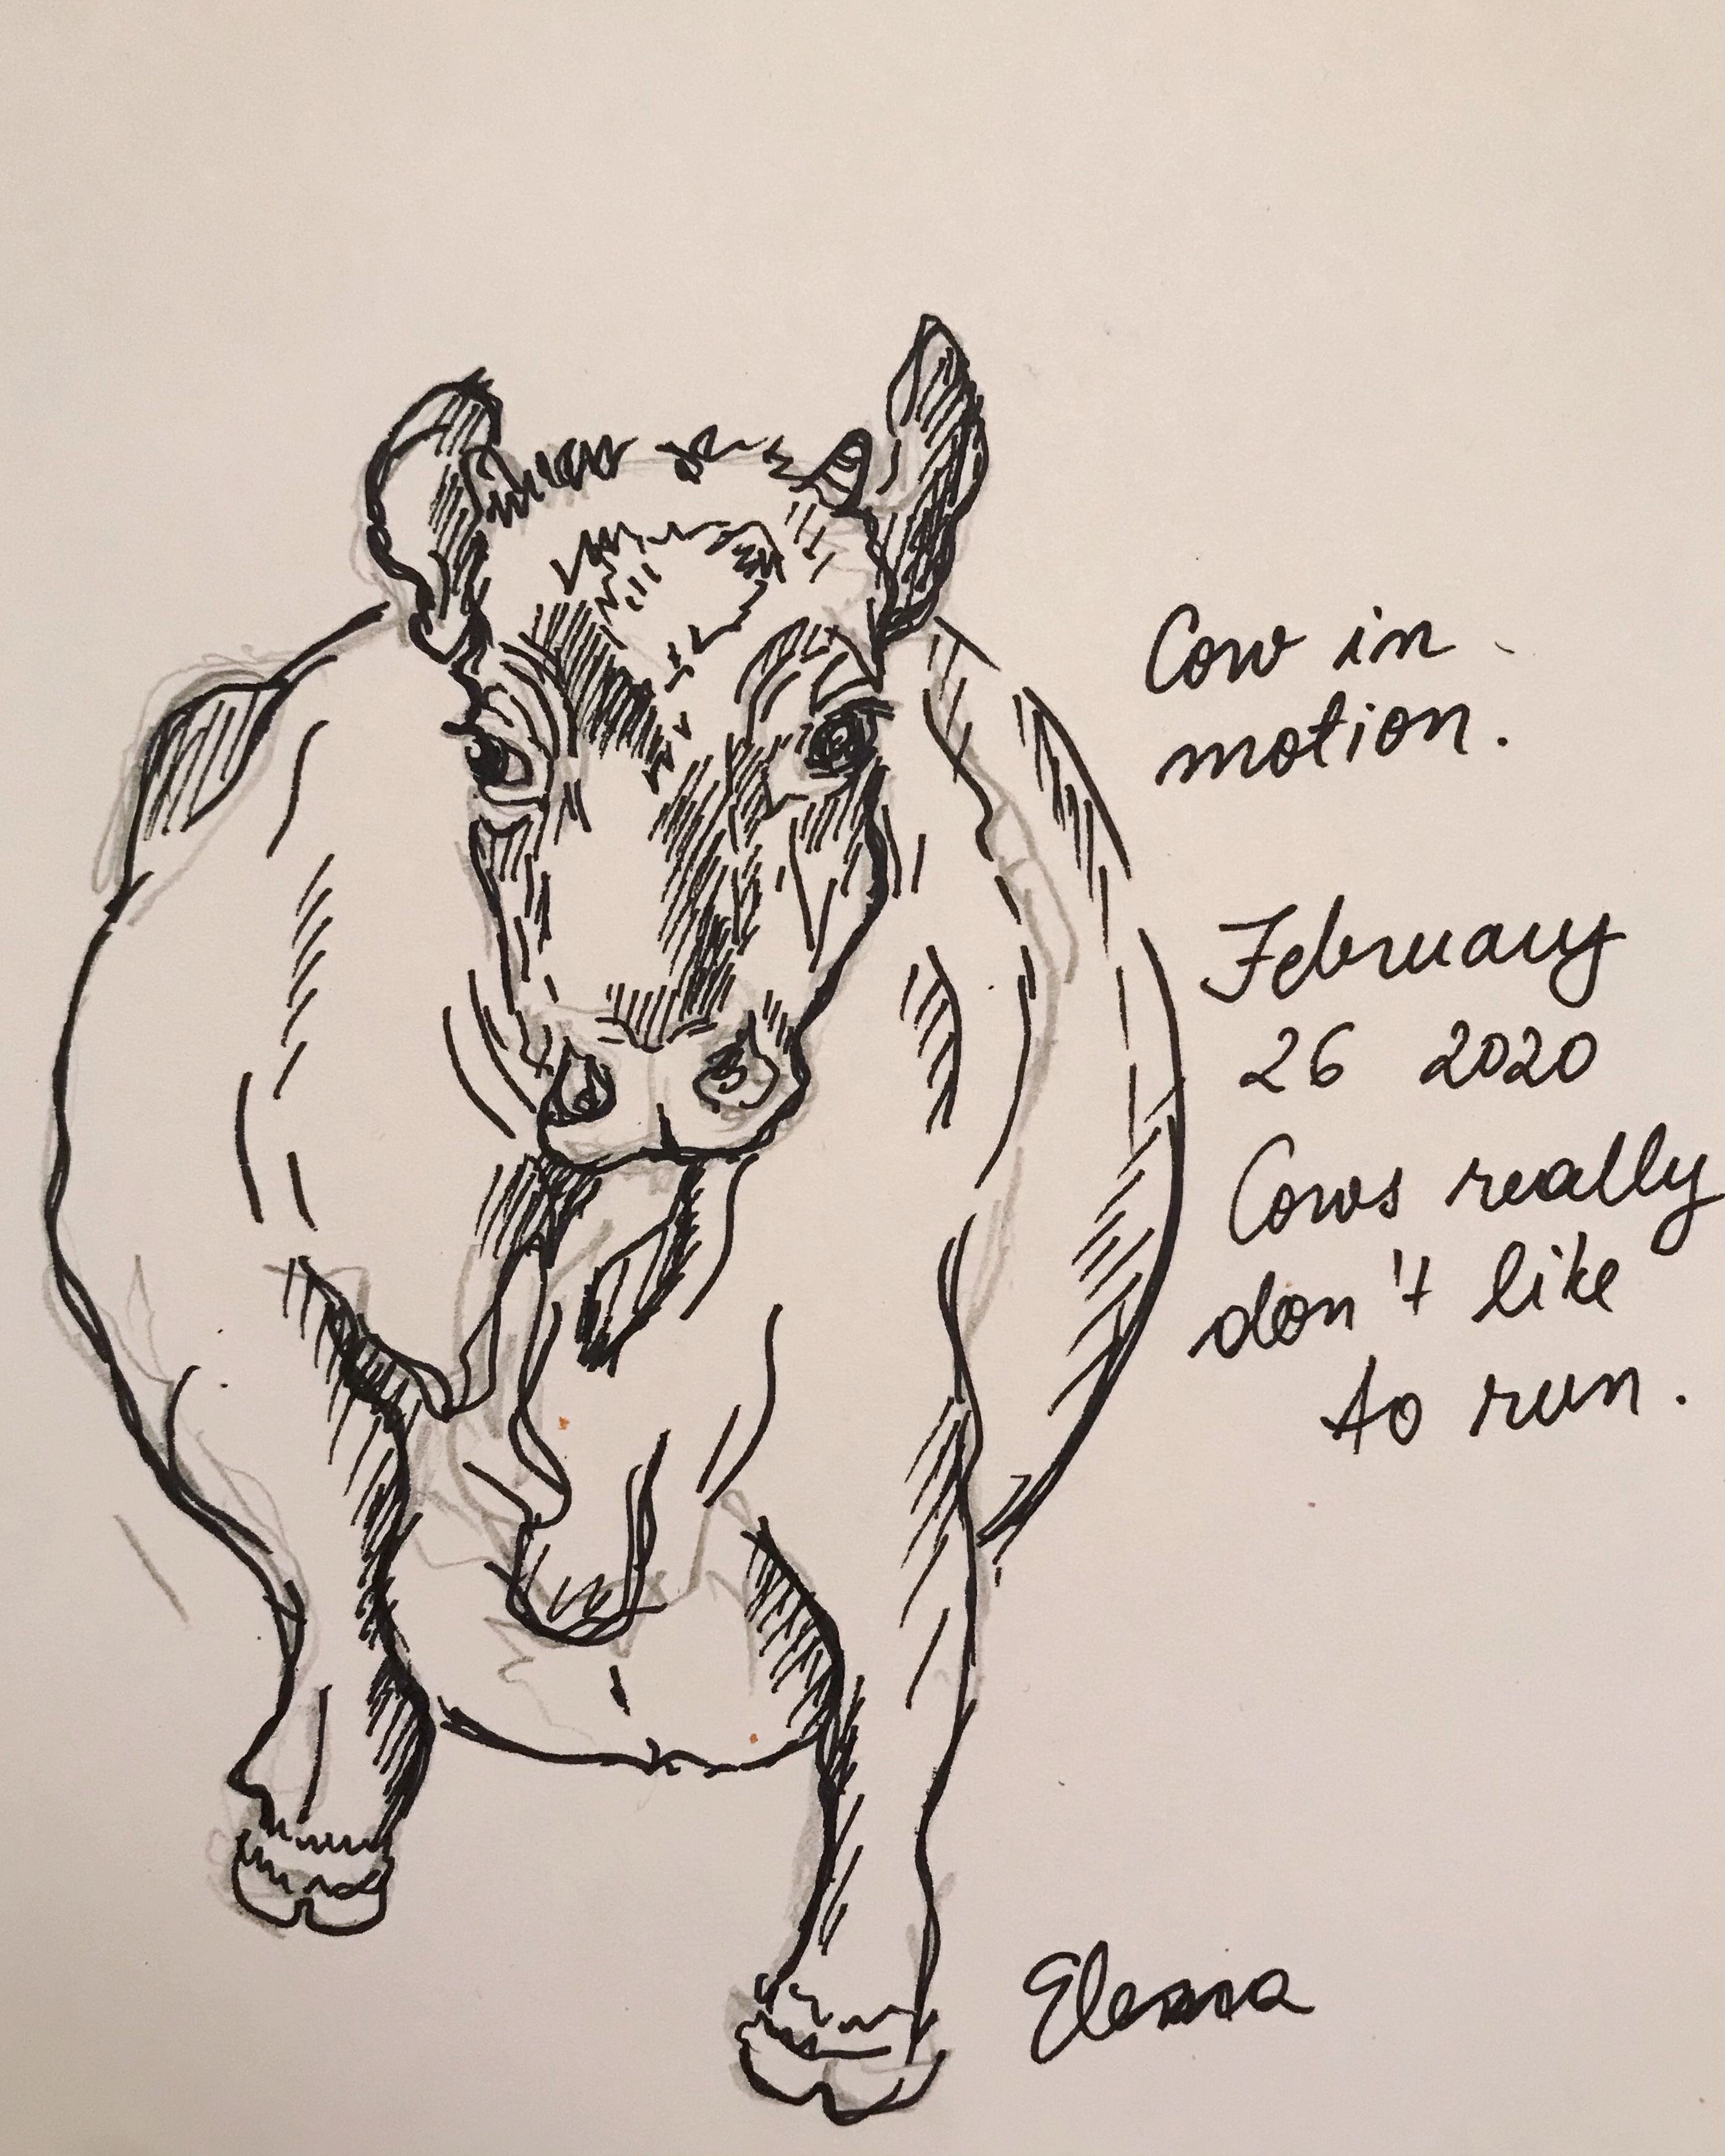 Cow in
motion.
February
26 2020
Cows really
don't like
to run.
Elena